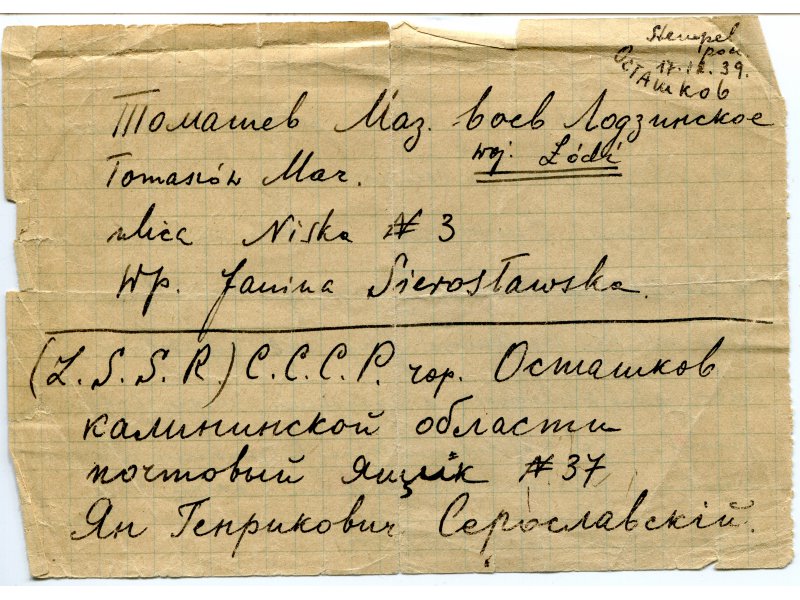 Stempel
pocz.
17.12.39.
ОСТАШКОВ
Томашев Маз. воев Лодзинское
woj. Łódź
Tomaszów Maz.
ulica Niska № 3
Wp. Janina Sierosławska.
(Z.S.S.R.) С.С.С.Р. гор. Осташков
калининской области
почтовый ящик № 37
Ян Генрикович Серославскій.